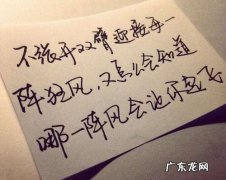 不张开双臂迎接每一
阵狂风，又怎么会知道
哪一阵风会让你起飞
广东龙网